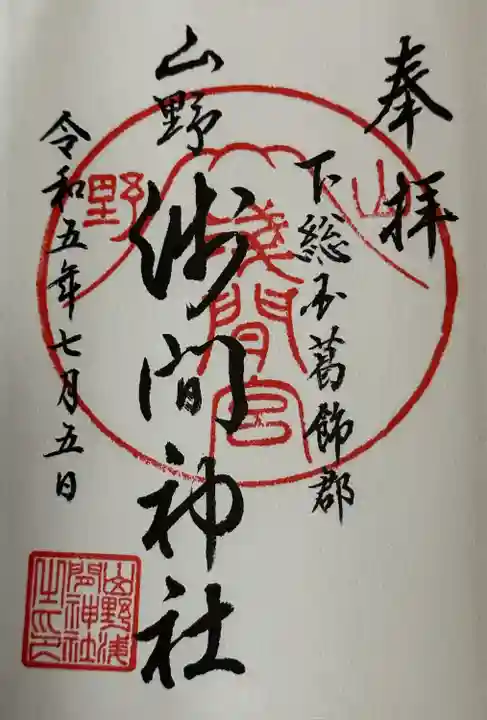 奉拝
下総国葛飾郡
山野
浅間神社
令和五年七月五日
山
野
浅間宮
山野浅
間神社
之印